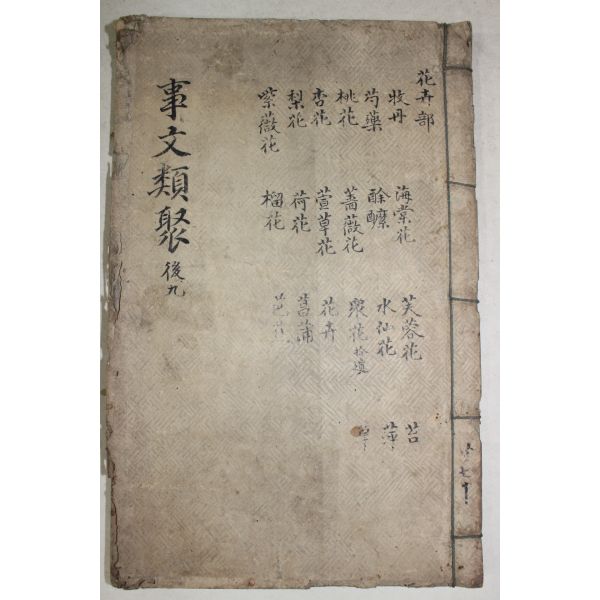 花卉部
牧丹
芍藥
桃花
杏花
梨花
紫薇花
海棠花
酴醾
薔薇花
萱草花
荷花
榴花
芙蓉花
水仙花
衆花
花卉
菖蒲
芭蕉
苔
萍
事文類聚 後九